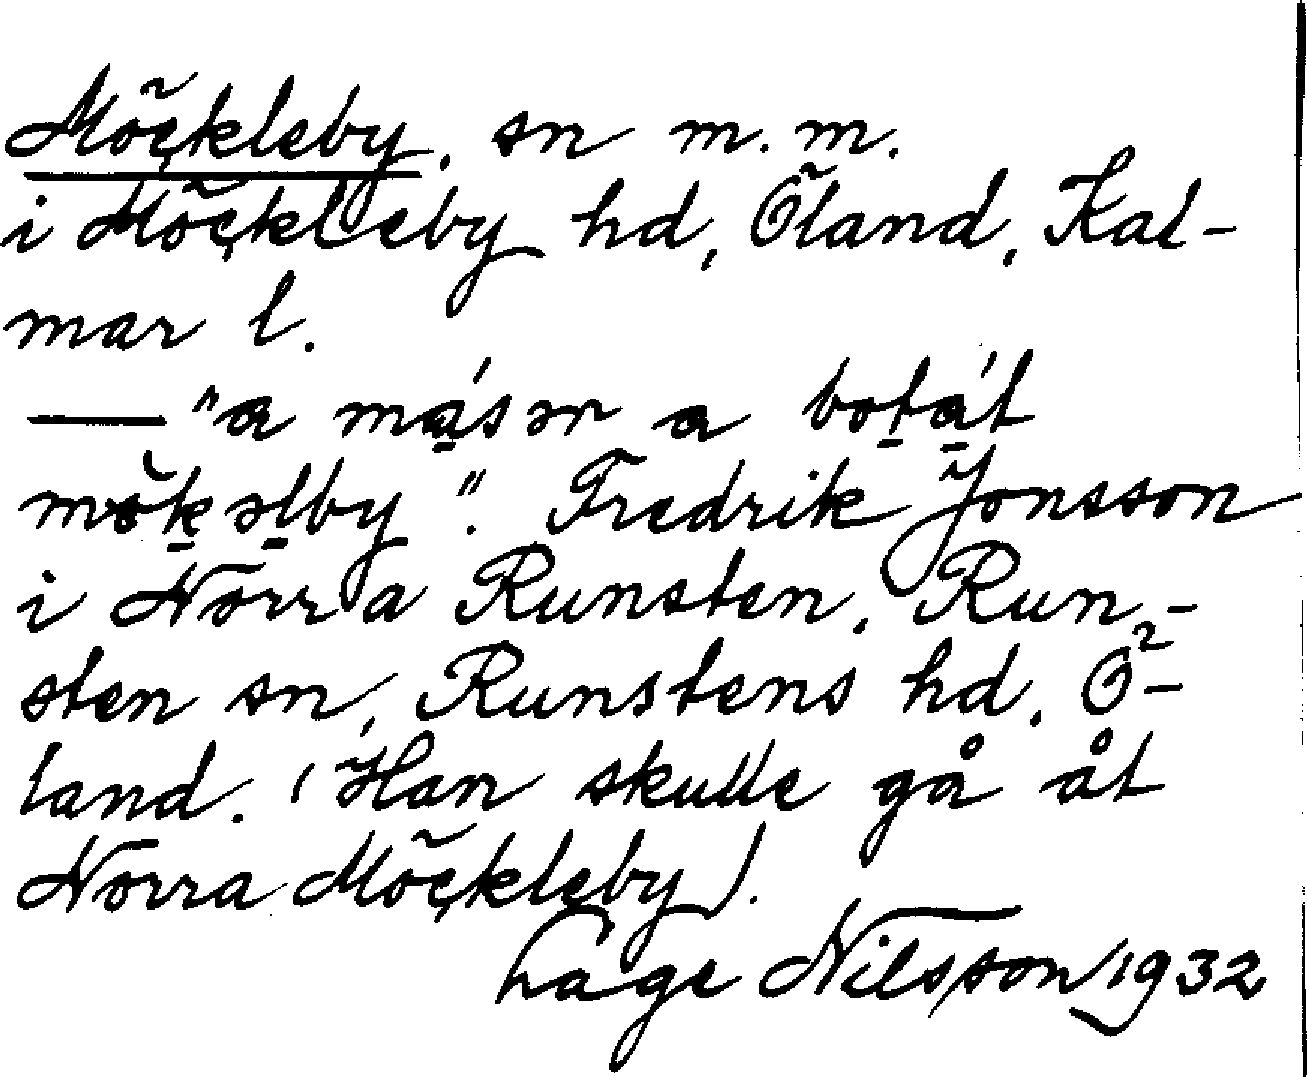 Möckleby, sn m.m.
i Möckleby hd, Öland, Kal-
mar l.
— "a másər a botát
mökəlby". Fredrik Jonsson
i Norra Runsten, Run-
sten sn, Runstens hd, Ö-
land. (Han skulle gå åt
Norra Möckleby).
Lage Nilsson 1932